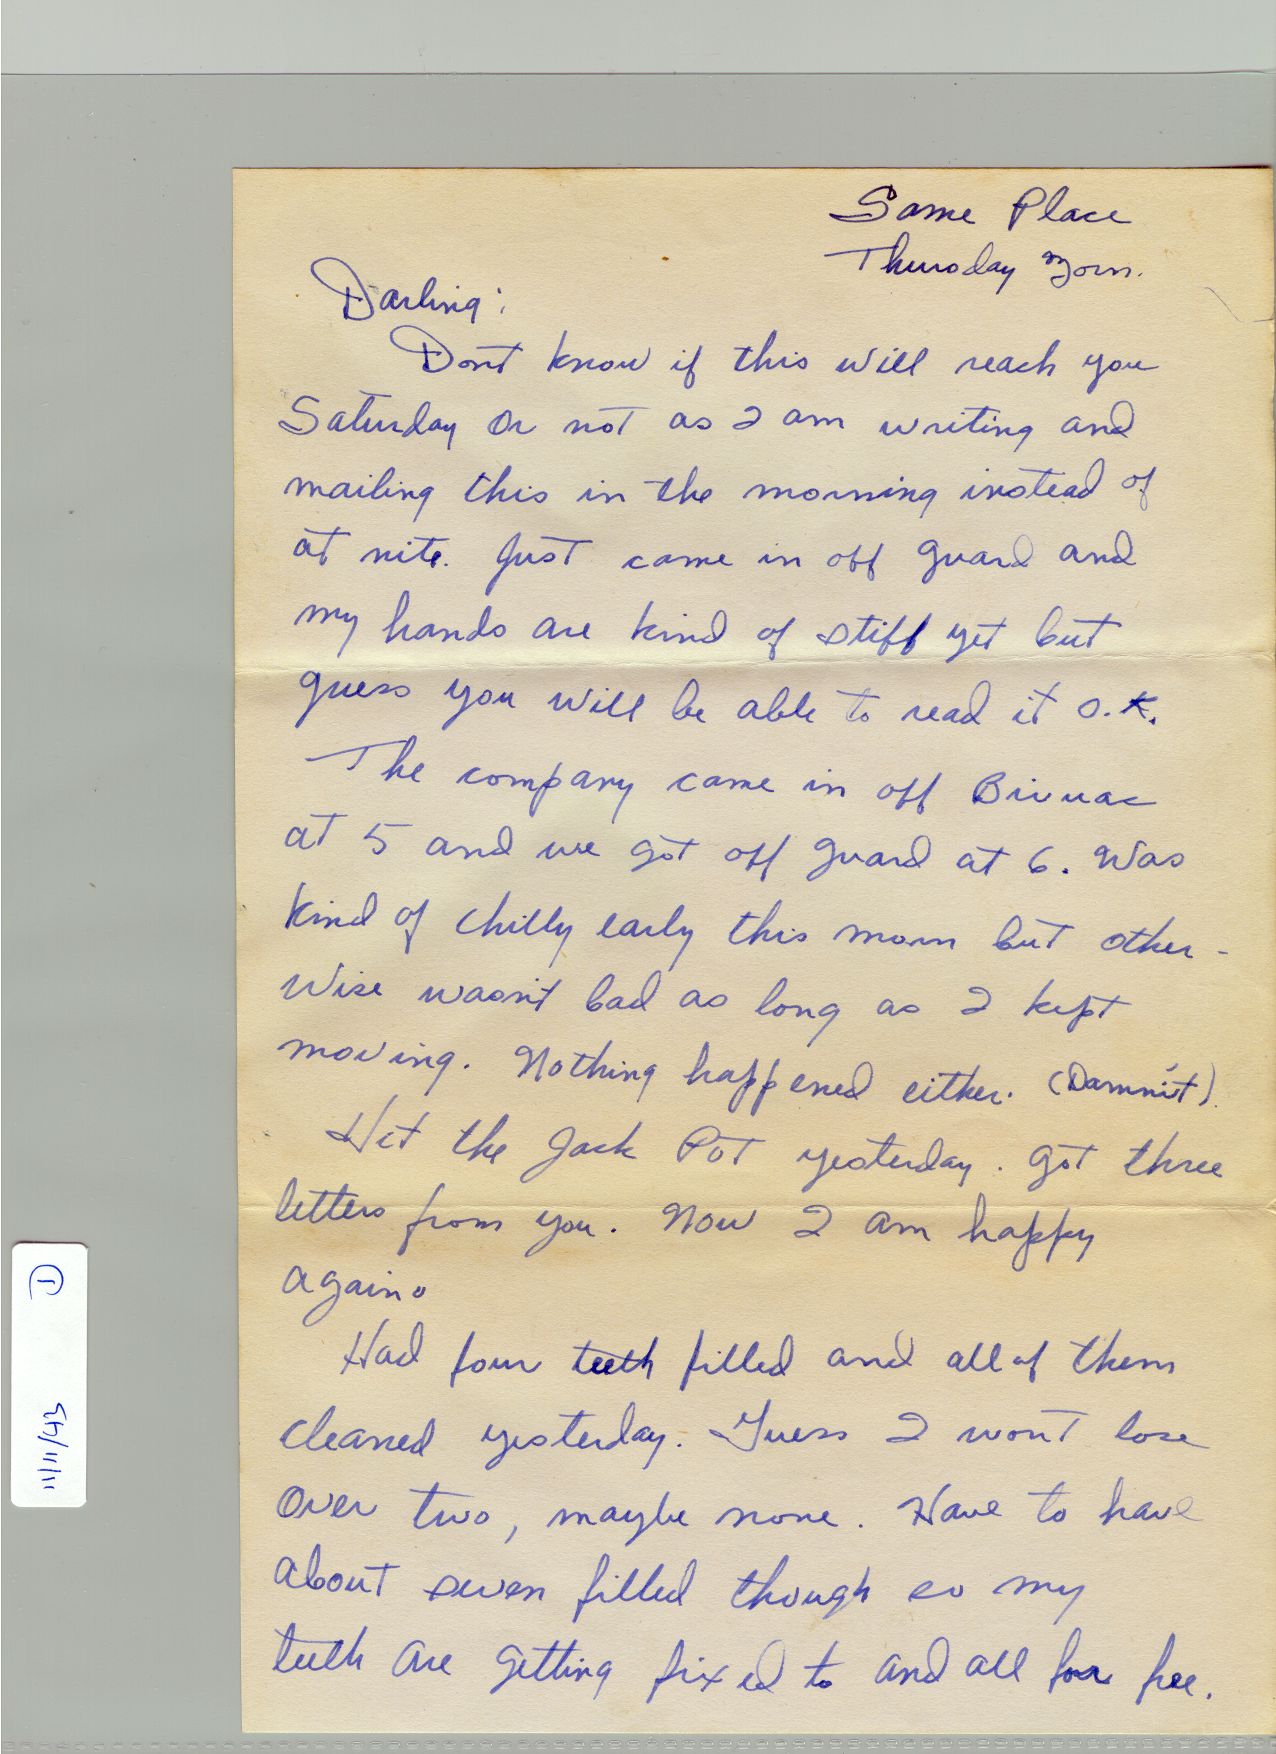 Same Place
Thursday Morn.
Darling:
Dont know if this will reach you
Saturday or not as I am writing and
mailing this in the morning instead of
at nite. Just came in off guard and
my hands are kind of stiff yet but
guess you will be able to read it O.K.
The company came in off Bivuac
at 5 and we got off guard at 6. Was
kind of chilly early this morn but other-
wise wasn't bad as long as I kept
moving. Nothing happened either. (Damnit).
Hit the Jack Pot yesterday. Got three
letters from you. Now I am happy
again.
Had four teeth filled and all of them
cleaned yesterday. Guess I wont lose
over two, maybe none. Have to have
about seven filled though so my
teeth are getting fixed to and all for free.
1
11/11/43